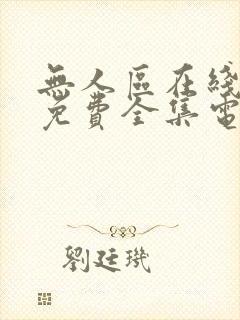 無人區在綫
免費全集電
劉廷璣